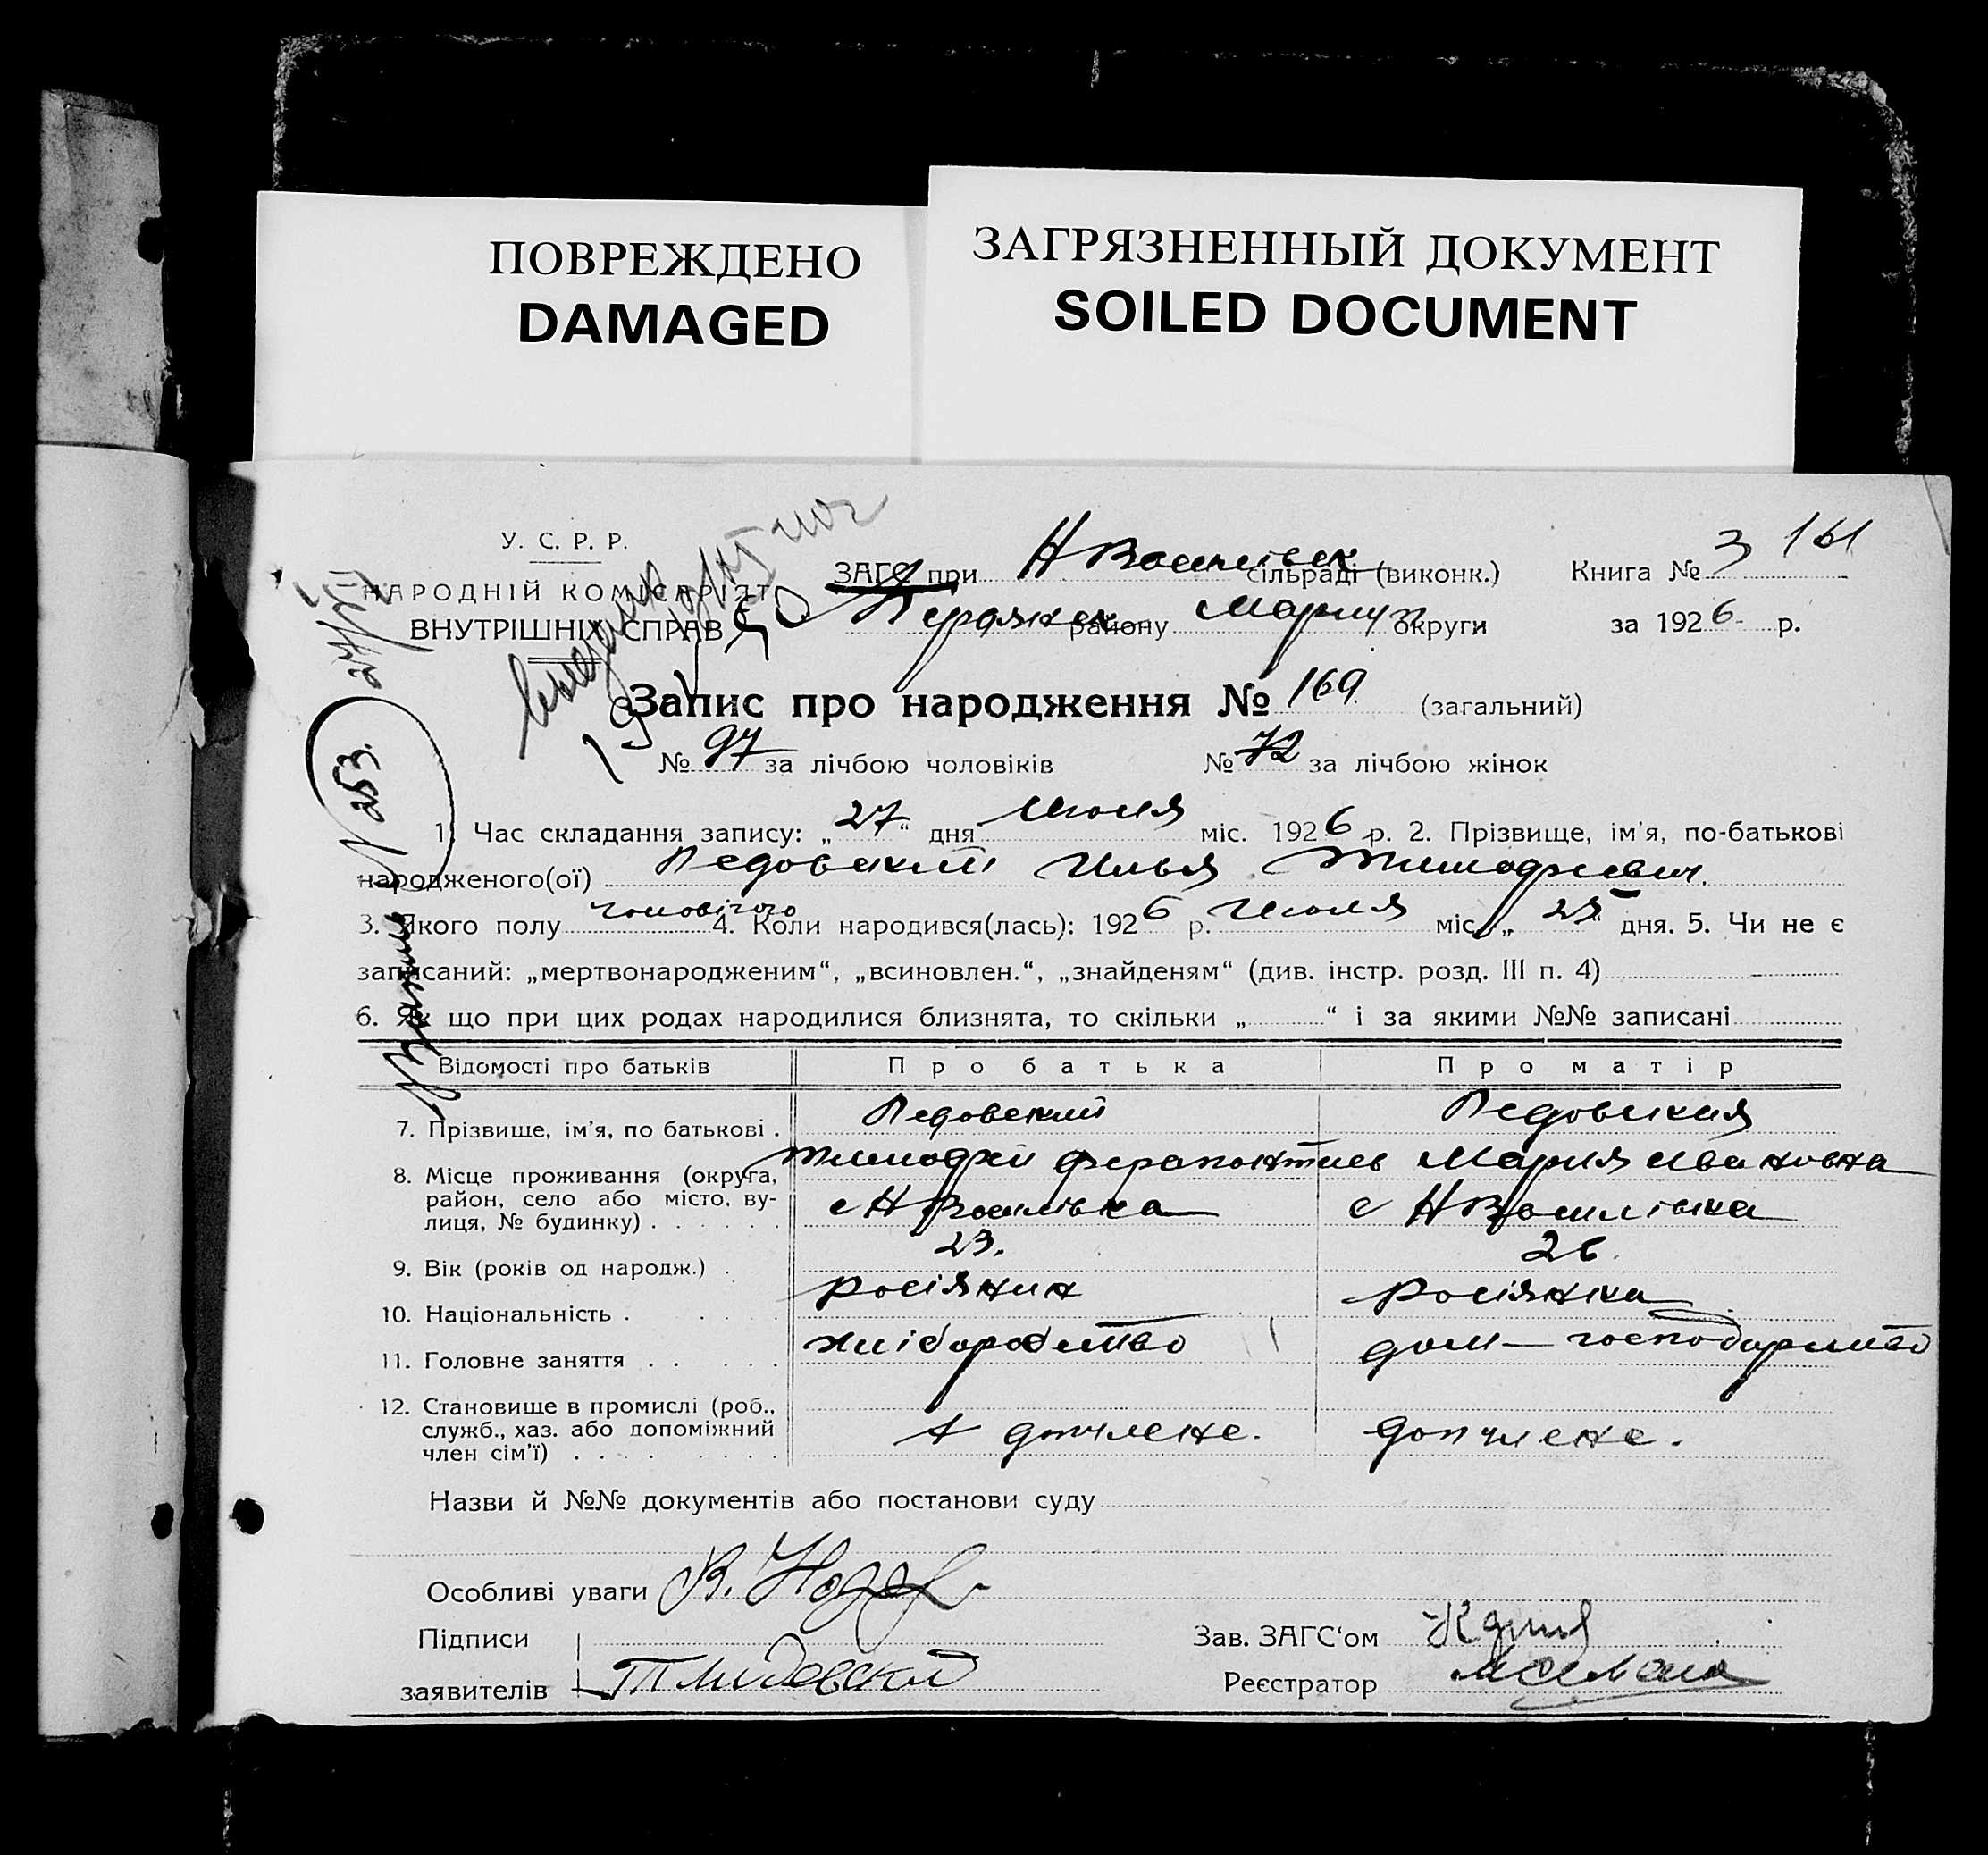 ПОВРЕЖДЕНО
DAMAGED
ЗАГРЯЗНЕННЫЙ ДОКУМЕНТ
SOILED DOCUMENT
У. С. Р. Р.
НАРОДНІЙ КОМІСАРІЯТ
ВНУТРІШНІХ СПРАВ
ЗАГС при Н Васильевск сільраді (виконк.)
району Мариуп округи
Книга № 3 161
за 1926 р.
Запис про народження № 169. (загальний)
№ 97 за лічбою чоловіків № 72 за лічбою жінок
1. Час складання запису: „27“ дня Июля міс. 1926 р. 2. Прізвище, ім’я, по-батькові
народженого(ої) Ледовский Илья Тимофиевич.
3. Якого полу чоловічого 4. Коли народився(лась): 1926 р. Июля міс. „25 дня. 5. Чи не є
записаний: „мертвонародженим“, „всиновлен.“, „знайденям“ (див. інстр. розд. III п. 4)
6. Як що при цих родах народилися близнята, то скільки „ “ і за якими №№ записані
Відомості про батьків Про батька Про матір
7. Прізвище, ім’я, по батькові . Ледовский Ледовская
Тимофей Мария Ивановна
8. Місце проживання (округа, район, село або місто, вулиця, № будинку) с Н Василівка с Н Василівка
9. Вік (років од народж.) . 23. 26.
10. Національність . росіянин росіянка
11. Головне заняття хліборобство дом – господарство
12. Становище в промислі (роб., служб., хаз. або допоміжний член сім’ї) допчлене. допчлене.
Назви й №№ документів або постанови суду
Особливі уваги
Підписи
заявителів Т Лидовский
Зав. ЗАГС‘ом
Реєстратор
N 253.